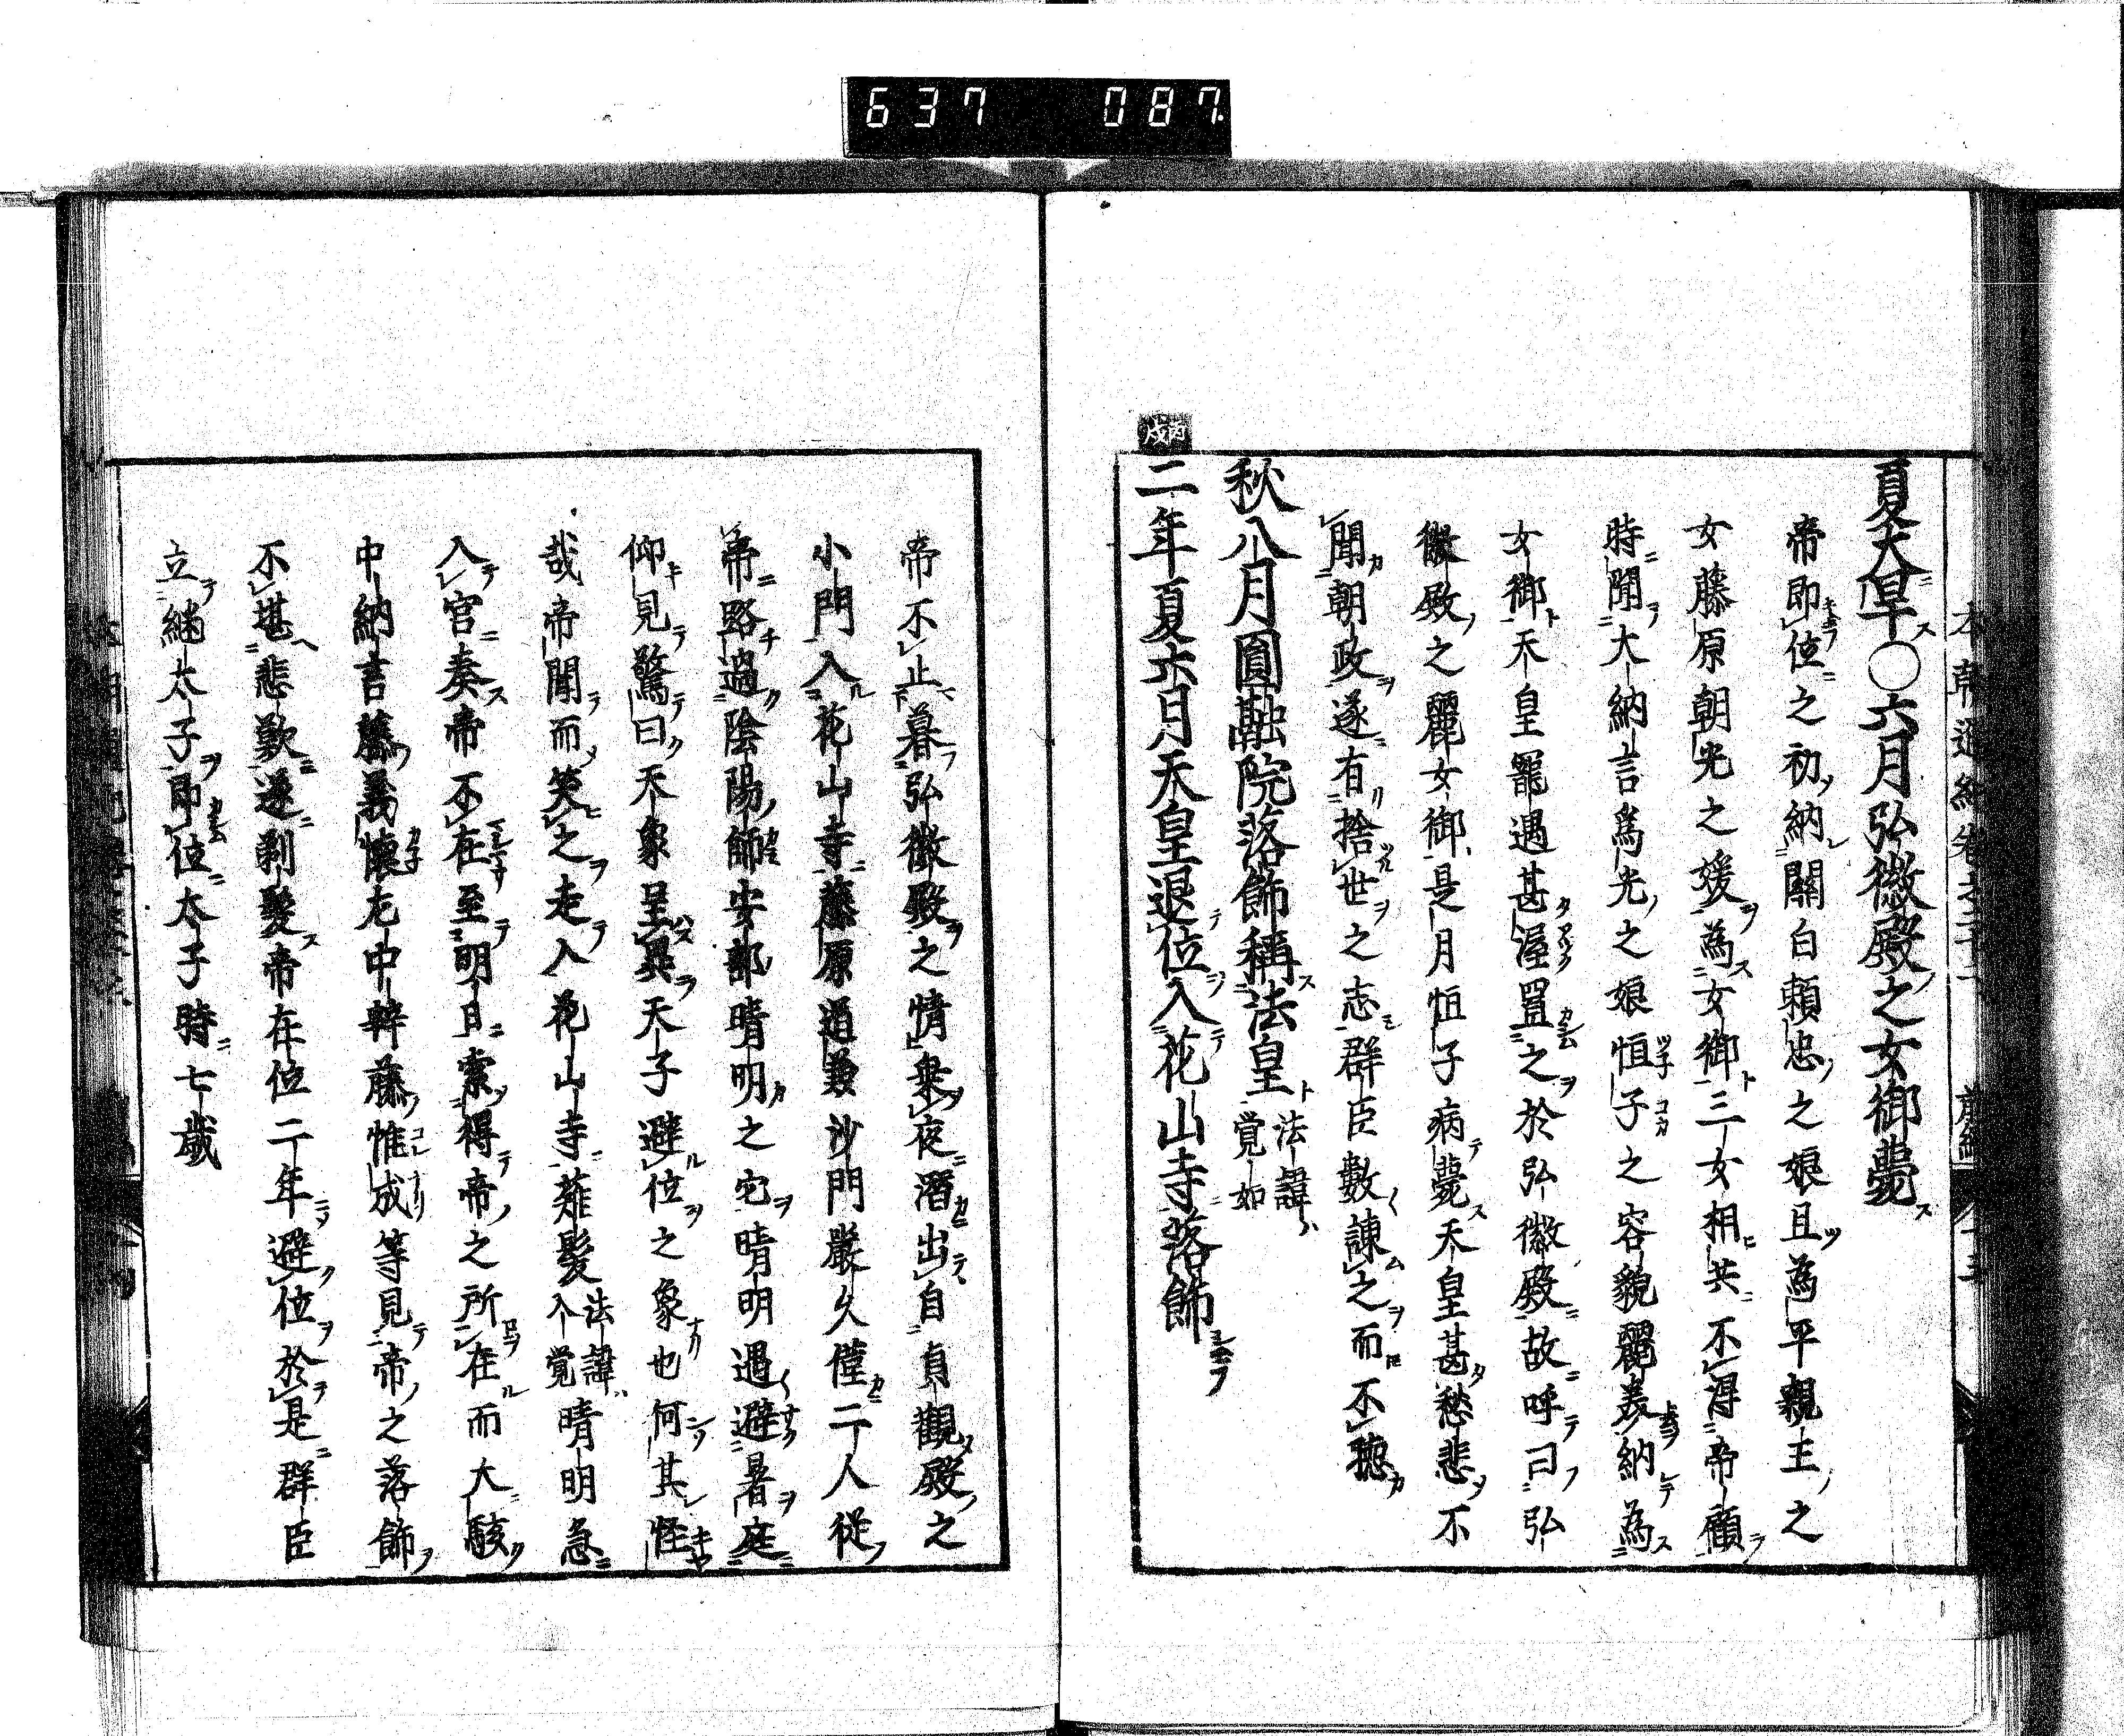 637 087.
夏大旱○六月弘徽殿之女御薨
帝即位之初納關白頼忠之娘且為平親王之
女藤原朝光之媛為女御三女相共不得帝顧
時聞大納言爲光之娘恒子之容貌麗美納為
女御天皇寵遇甚渥置之於弘徽殿故呼曰弘
徽殿之麗女御是月恒子病薨天皇甚愁悲不
聞朝政遂有捨世之志群臣數諌之而不聴
秋八月圓融院落飾稱法皇法諱覚如
丙戌
二年夏六月天皇退位入花山寺落飾
帝不止暮弘徽殿之情乗夜潛出自貞觀殿之
小門入花山寺藤原道兼沙門嚴久僅二人從
帝路過陰陽師安部晴明之宅晴明遇避暑庭
仰見驚曰天象呈異天子避位之象也何其怪
哉帝聞而笑之走入花山寺薙髪法諱入覚晴明急
入宮奏帝不在至明日索得帝之所在而大駭
中納言藤義懐左中辨藤惟成等見帝之落飾
不堪悲歎遂剃髪帝在位二年避位於是群臣
立継太子即位太子時七歳